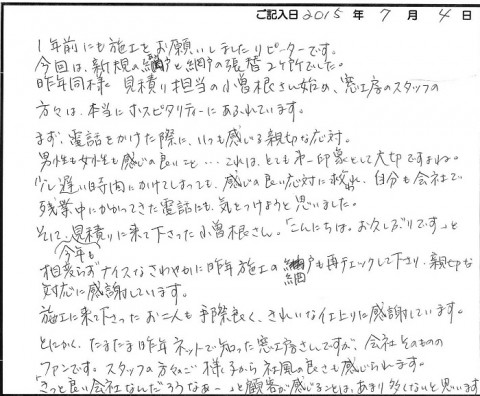 ご記入日 2015 年 7 月 4 日
1年前にも施工をお願いしましたリピーターです。
今回は、新規の網戸と網戸の張替2ヶ所でした。
昨年同様、見積り担当の小曽根さん始め、窓工房のスタッフの
方々は、本当にホスピタリティーにあふれています。
まず、電話をかけた際に、いつも感じる親切な応対。
男性も女性も感じの良いこと…これは、とても第一印象として大切ですよね。
少し遅い時間にかけてしまっても、感じの良い応対に救われ、自分も会社で
残業中にかかってきた電話にも、気をつけようと思いました。
そして、見積りに来て下さった小曽根さん。「こんにちは。お久しぶりです。」と
今年も
相変らずナイスなさわやかに昨年施工の網戸も再チェックして下さり、親切な
網
対応に感謝しています。
施工に来て下さったお二人も手際良く、きれいな仕上りに感謝しています。
とにかく、たまたま昨年ネットで知った窓工房さんですが、会社そのものの
ファンです。スタッフの方々のご様子から社風の良さも感じられます。
「きっと良い会社なんだろうなあー」と顧客が感じることは、あまり多くないと思います